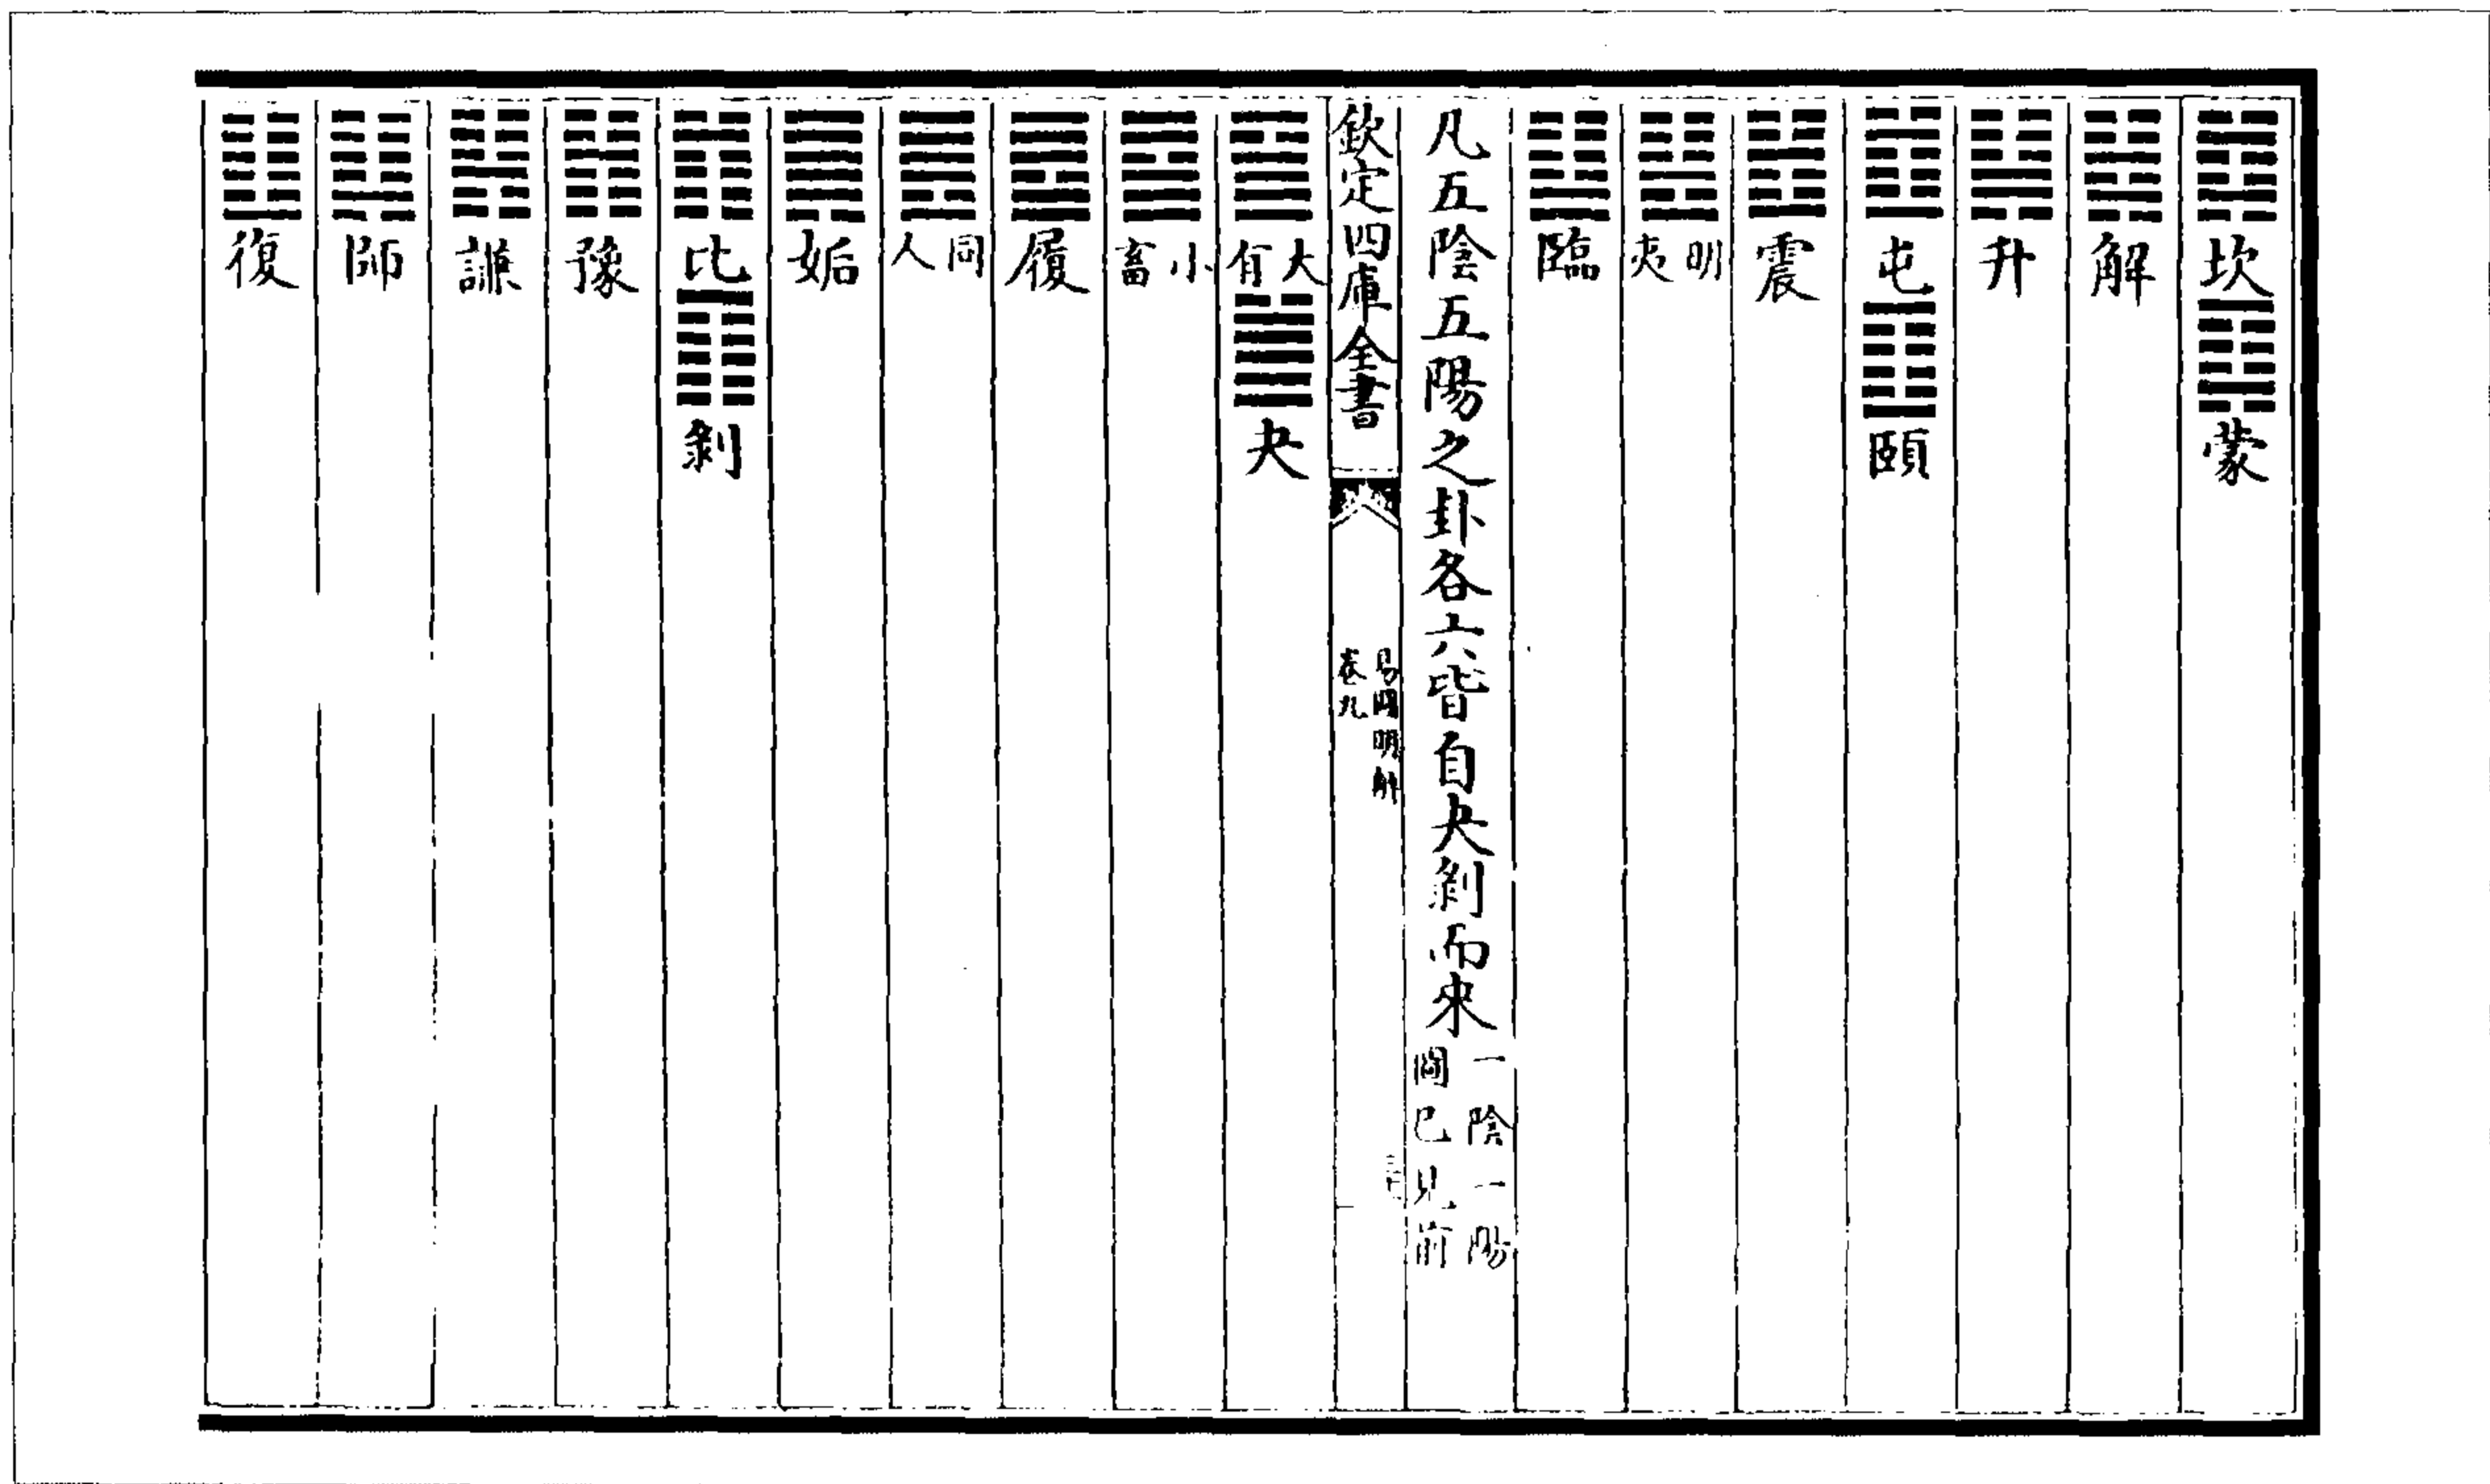 坎 蒙
解
升
屯 頤
震
明夷
臨
凡五陰五陽之卦各六皆自夬剝而來一陰一陽圖已見前
欽定四庫全書
易圖明辨
卷九
大有 夬
小畜
履
同人
姤
比 剝
豫
謙
師
復